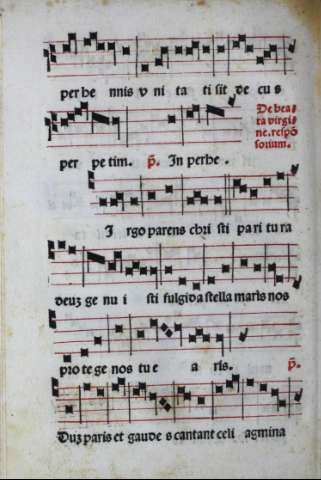 per he nnis v ni ta ti sit de cus
De bea
ta virgi
ne. respõ
sorium.
per pe tim. p̃. In perhe .
I rgo parens chri sti pa ri tu ra
deuz ge nu i sti fulgida stella maris nos
pro te ge nos tu e a ris. p̃.
Duz paris et gaude s cantant celi agmina